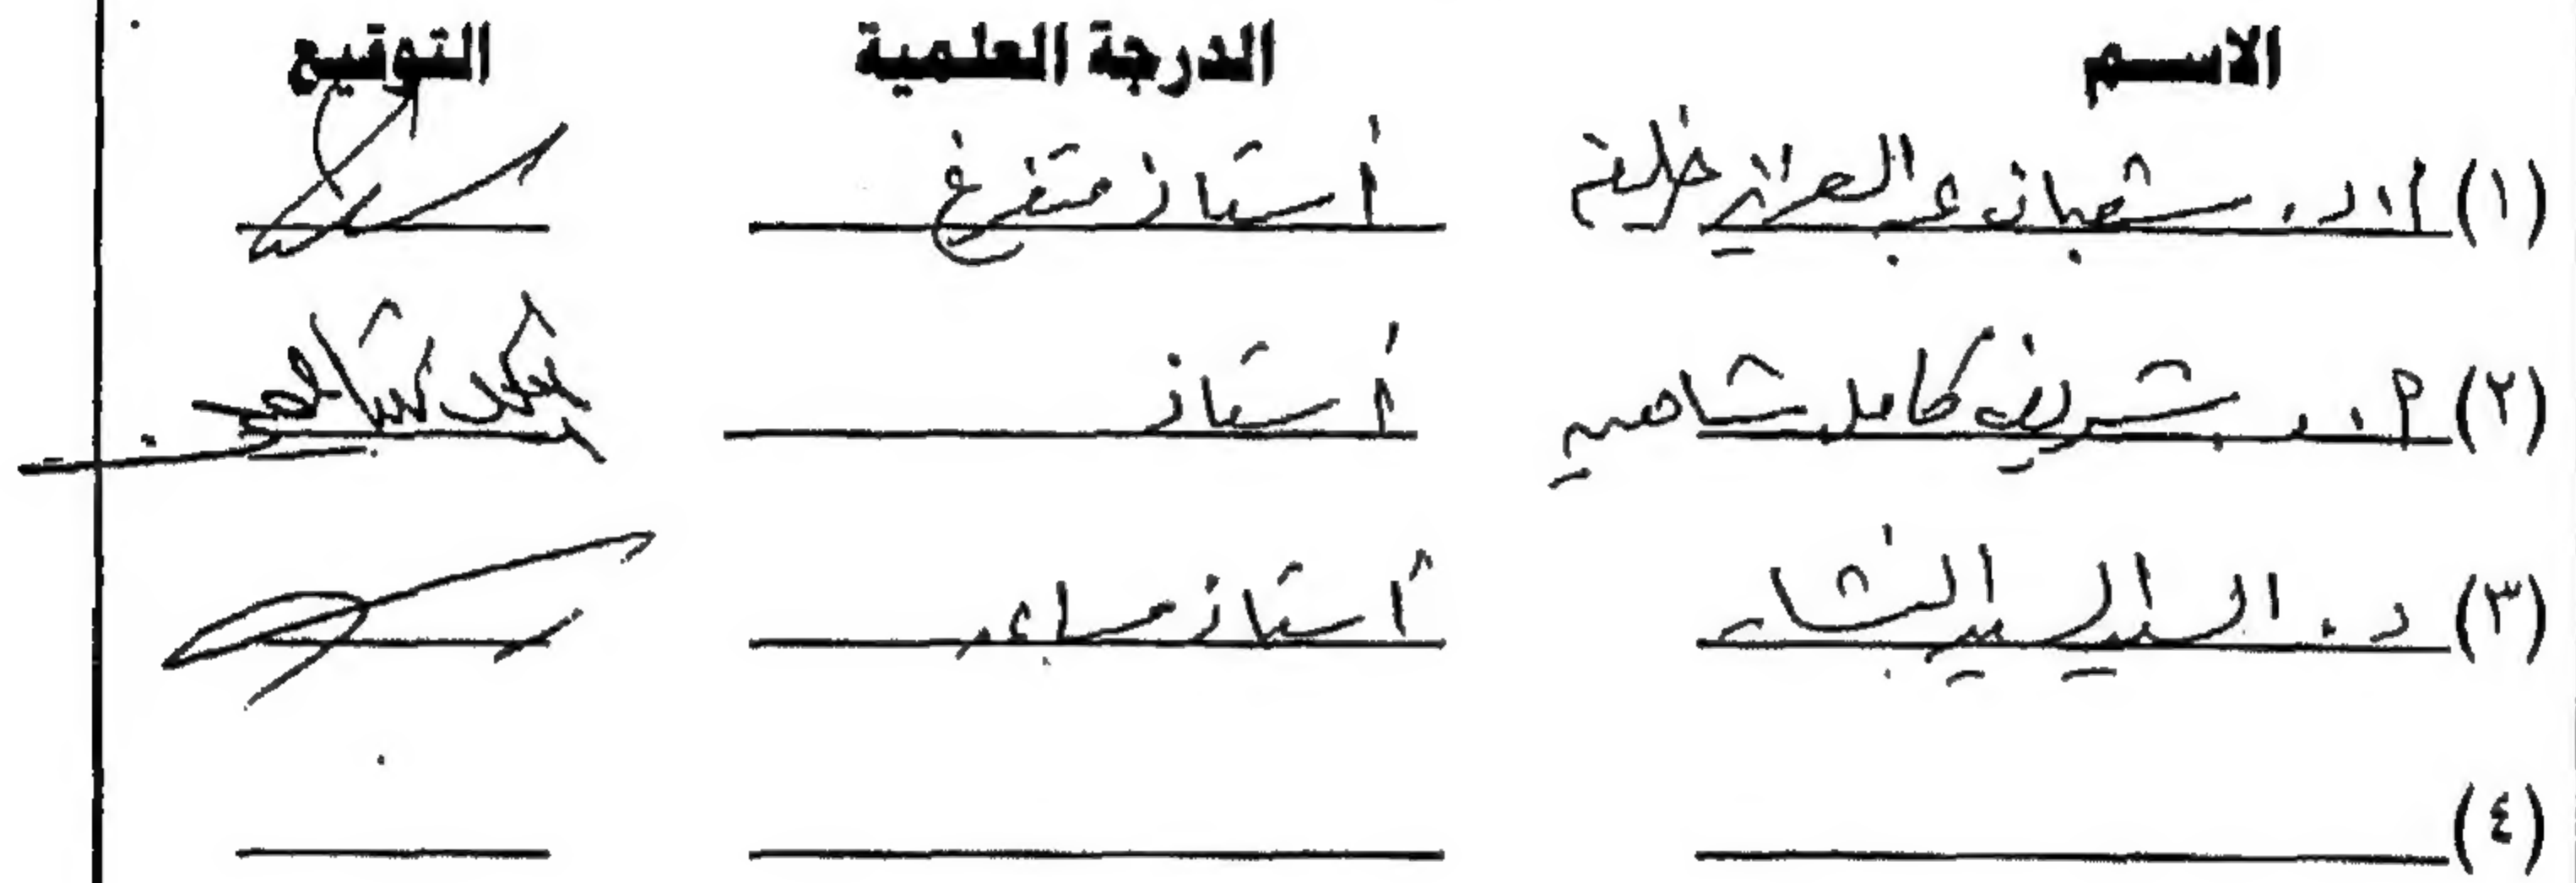 الاسم الدرجة العلمية التوقيع
(١) أ.د. شعبان عبد العزيز خليفة أستاذ متفرغ
(٢) أ.د. شريف كامل شاهين أستاذ
(٣) د. السيد السيد النشار أستاذ مساعد
(٤)